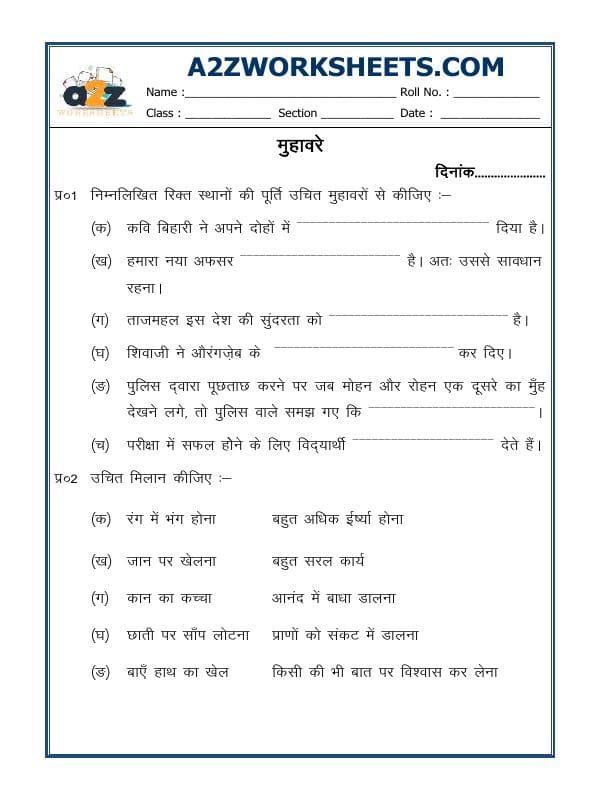 A2ZWORKSHEETS.COM
a2z
WORKSHEETS
Name :______________________ Roll No. : __________
Class : __________ Section ________ Date : ___________
मुहावरे
दिनांक.....................
प्र०1 निम्नलिखित रिक्त स्थानों की पूर्ति उचित मुहावरों से कीजिए :–
(क) कवि बिहारी ने अपने दोहों में ______________________ दिया है।
(ख) हमारा नया अफसर __________________ है। अतः उससे सावधान
रहना।
(ग) ताजमहल इस देश की सुंदरता को ____________________ है।
(घ) शिवाजी ने औरंगज़ेब के ____________________ कर दिए।
(ङ) पुलिस द्वारा पूछताछ करने पर जब मोहन और रोहन एक दूसरे का मुँह
देखने लगे, तो पुलिस वाले समझ गए कि __________________ ।
(च) परीक्षा में सफल होने के लिए विद्यार्थी ________________ देते हैं।
प्र०2 उचित मिलान कीजिए :–
(क) रंग में भंग होना बहुत अधिक ईर्ष्या होना
(ख) जान पर खेलना बहुत सरल कार्य
(ग) कान का कच्चा आनंद में बाधा डालना
(घ) छाती पर साँप लोटना प्राणों को संकट में डालना
(ङ) बाएँ हाथ का खेल किसी की भी बात पर विश्वास कर लेना